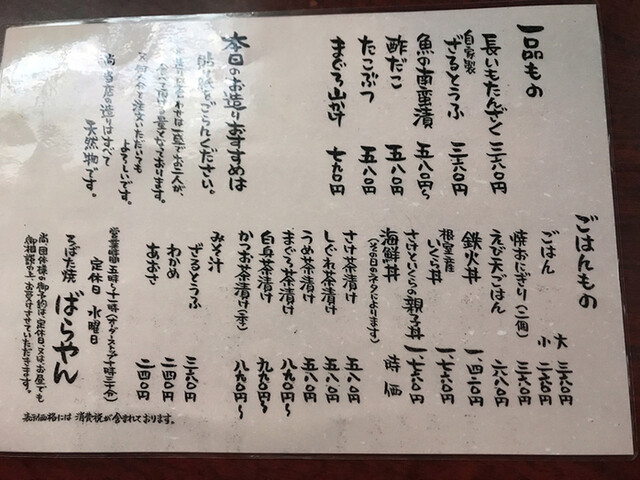 一品もの
長いもたんざく 三六〇円
自家製
ざるとうふ 三六〇円
魚の南蛮漬 五八〇円〜
酢だこ 五八〇円
たこぶつ 五八〇円
まぐろ山かけ 七六〇円
本日のお造りおすすめは
ごらんください。
よろしいです。
尚当店の造りはすべて
天然物です。
ごはんもの
ごはん 大 三六〇円
小 二六〇円
焼おにぎり(二個) 三六〇円
えび天ごはん 六八〇円
鉄火丼 一四二〇円
根室産
いくら丼 一七六〇円
さけといくらの親子丼 一七六〇円
海鮮丼 時価
(その日のネタによります)
さけ茶漬け 五八〇円
しぐれ茶漬け 五八〇円
うめ茶漬け 五八〇円
まぐろ茶漬け 八七〇円〜
白身茶漬け 九七〇円〜
かつお茶漬け(季) 八七〇円〜
みそ汁
ざるとうふ 三六〇円
わかめ 二四〇円
あおさ 二四〇円
営業時間 五時〜十一時(オーダーストップ十時三十分)
定休日 水曜日
ろばた焼 ばらやん
尚、団体様の御予約は、定休日、又は、お昼でも
御相談の上、お受けさせていただきます。
表示価格には 消費税が含まれております。